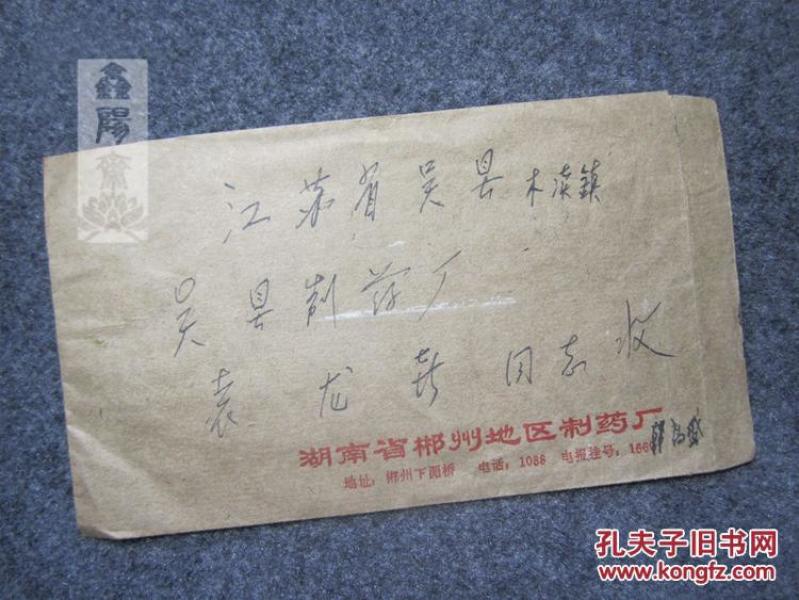 鑫陽齋
江苏省吴县木渎镇
吴县制药厂
袁龙 同志收
湖南省郴州地区制药厂
地址：郴州下湄桥 电话：1088 电报挂号：166
孔夫子旧书网
www.kongfz.com